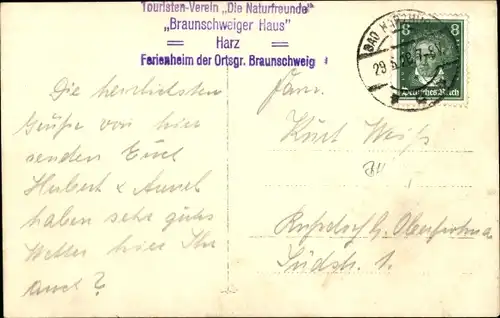 Touristen-Verein „Die Naturfreunde"
„Braunschweiger Haus"
Harz
Ferienheim der Ortsgr. Braunschweig
BAD HARZBURG
29.5.
8 8
Deutsches Reich
Die herzlichsten
Grüße von hier
senden Euch
Herbert &
haben sehr gutes
Wetter hier Ihr
auch?
Fam.
Kurt Weiß
b. Oberfrohna
Südstr. 1.